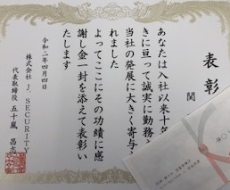 表彰
関
あなたは入社以来十年
きに亘って誠実に勤務さ
当社の発展に大きく寄与
れました
よってここにその功績に感
謝し金一封を添えて表彰い
たします
令和二年四月四日
株式会社 J. SECURITY
代表取締役 五十嵐 昌